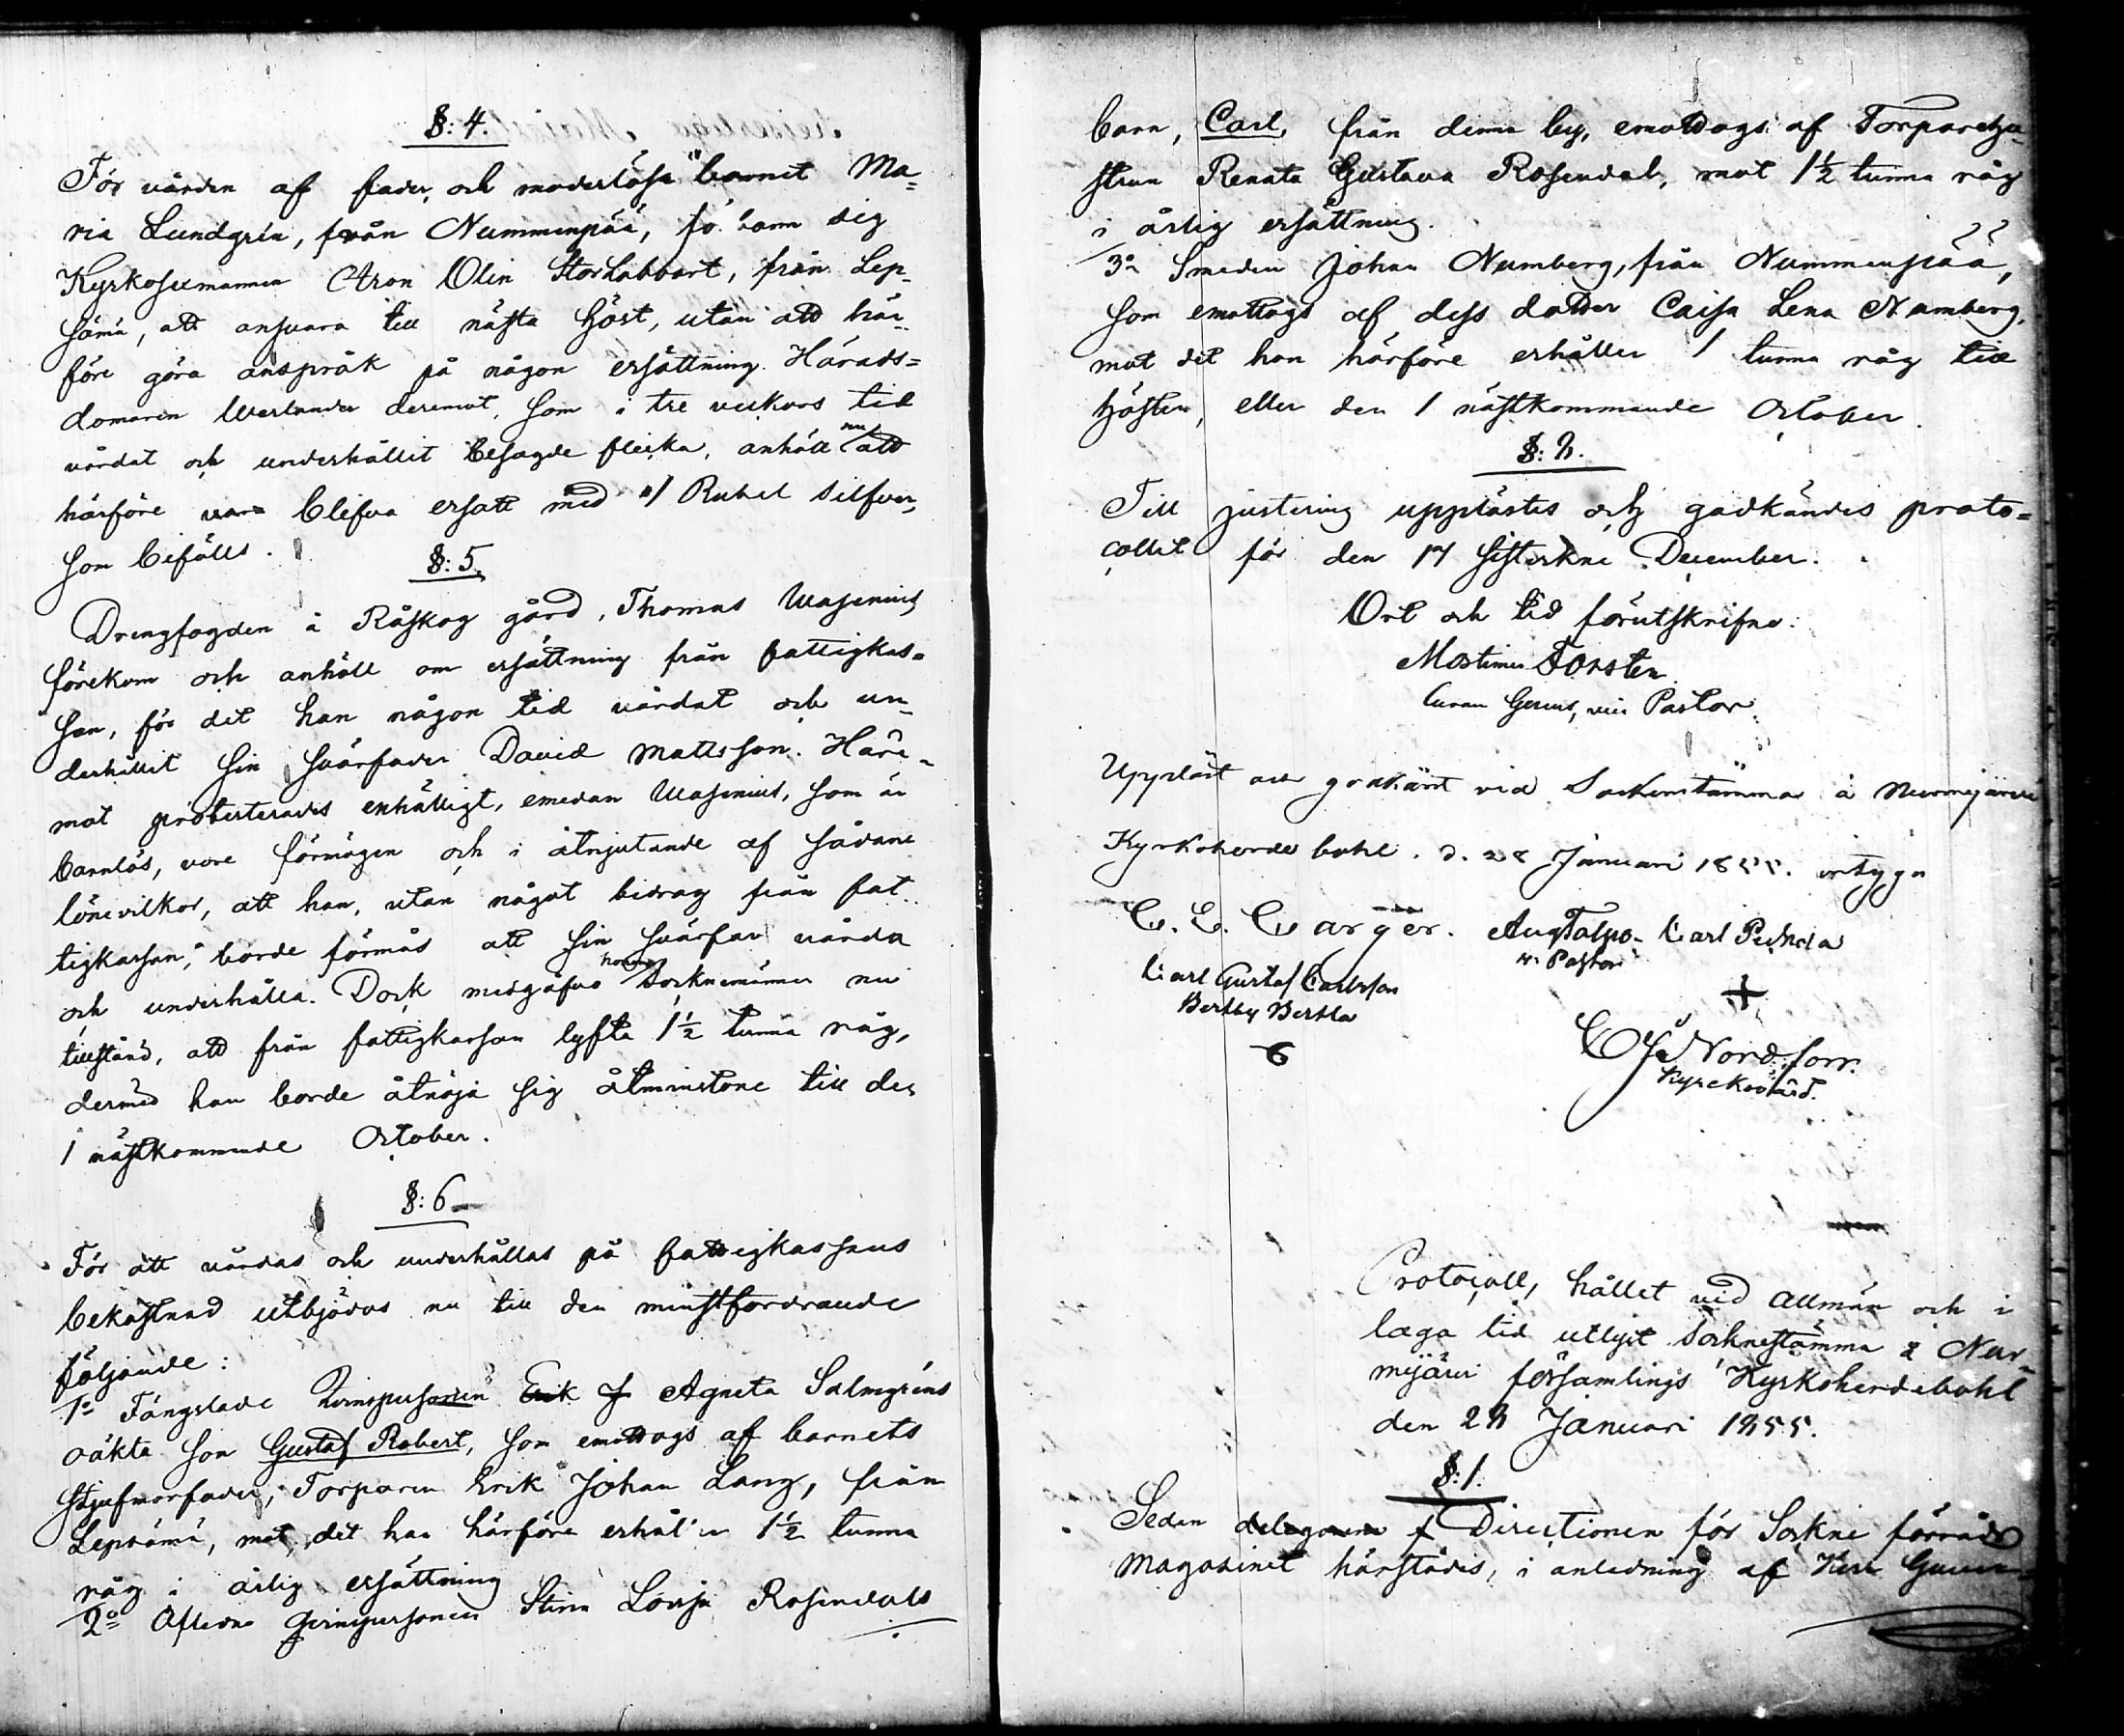 §: 4.
För vården af fader och moderlösa barnet Ma=
ria Lundgrén, från Nummenpää, så kom sig
Kyrkosexmannen Aron Olin Storlabbart, från Lep-
sämä, att ansvara till nästa höst, utan att här-
före göra anspråk på någon ersättning. Härads=
domaren Werlander deremot, som i tre veckors tid
vårdat och underhållit besagde flicka, anhöll nu att
härföre vara blefva ersatt med 1 Rubel silfver,
som bifölls.
§: 5.
Drengfogden å Råskog gård, Thomas Wasenius
förekom och anhöll om ersättning från fattigkas=
san, för det han någon tid vårdat och un-
derhållit sin svärfader David Mattsson. Häre-
mot protesterades enhälligt, emedan Wasenius, som är
barnlös, vore förmögen och i åtnjutande af sådane
lönevilkor, att han, utan något bidrag från fat-
tigkassan, borde förmås att sin svärfar vårda
och underhålla. Dock medgåfvo honom Socknemännen nu
tillstånd, att från fattigkassan lyfta 1½ tunna råg,
dermed han borde åtnöja sig åtminstone till den
1 nästkommande October.
§: 6
För att vårdas och underhållas på fattigkassans
bekostnad utbjödos nu till den minstfordrande
följande:
1o Fängslade Qvinspersonen Erik J Agneta Salmgréns
oäkta son Gustaf Robert, som emottogs af barnets
stjufmorfader, Torparen Erik Johan Lang, från
Lepsämä, mot det han härföre erhåller 1½ tunna
råg i årlig ersättning
2o Aflidne Qvinspersonen Stina Lovisa Rosendals
barn, Carl, från denna by, emottogs af Torpareen-
kan Renata Gustava Rosendal, mot 1½ tunna råg
i årlig ersättning.
3o Smeden Johan Numberg, från Nummenpää,
som emottogs af dess dotter Caisa Lena Numberg,
mot det hon härföre erhåller 1 tunna råg till
hösten, eller den 1 nästkommande October.
§: 8.
Till justering upplästes och godkändes proto=
collet för den 17 sistvekne December.
Ort och tid förutskrifne.
Mortimer Forsten
Curam Gerens, vice Pastor.
Uppläst och godkänt vid Sockenstämma å Nurmijärvi
Kyrkoherde bohl. d. 28 Januari 1855. intyga
C. E. Carger. Aug Talpo. Carl Puhda
v. Pastor
Carl Gustaf Carlsson
Bertby Bertla
C J Nordforr.
Kyrckovärd.
Protocoll, hållet vid allmän och i
laga tid utlyst Socknestämma å Nur-
mijärvi församlings Kyrkoherdebohl
den 28 Januari 1855.
§: 1.
Sedan delegarne f Directionen för Sockne förråds
Magasinet härstädes, i anledning af Herr Guver-